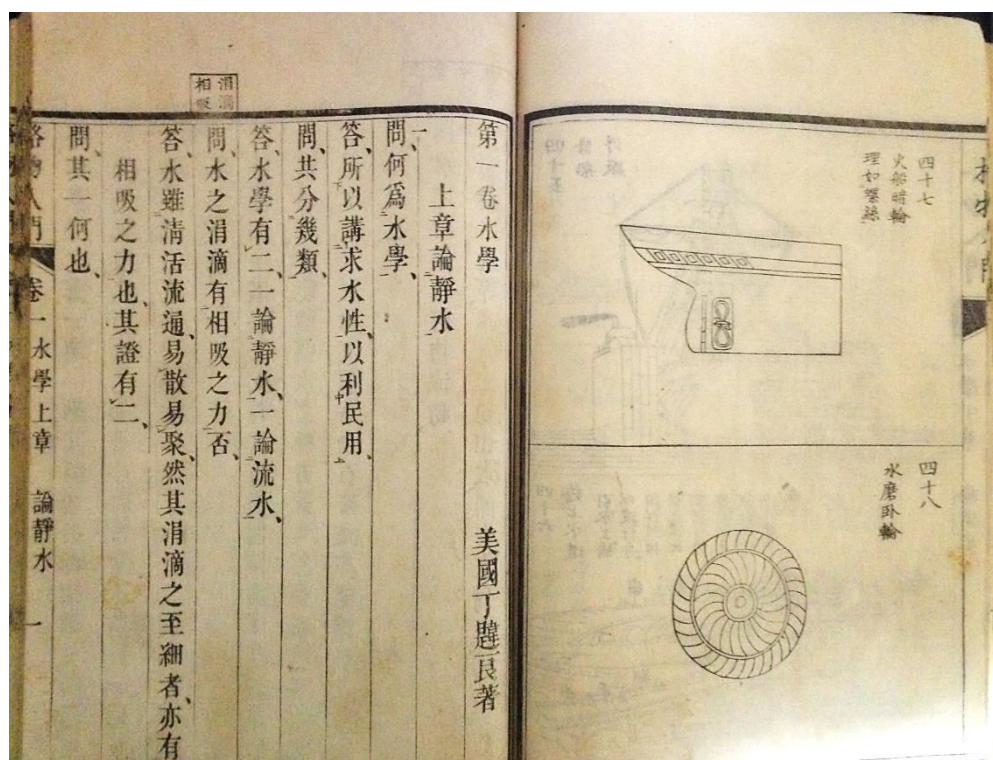 格物入門
四十七
火船暗輪
理如螺絲
四十八
水磨臥輪
第一卷水學 美國丁韙良著
上章論靜水
一問、何爲水學、
答、所以講求水性、以利民用、
問、共分幾類、
答、水學有二、一論靜水、一論流水、
涓滴
相吸
問、水之涓滴有相吸之力否、
答、水雖清活流通、易散易聚、然其涓滴之至細者、亦有
相吸之力也、其證有二、
問、其一何也、
格物入門 卷一 水學上章 論靜水 一